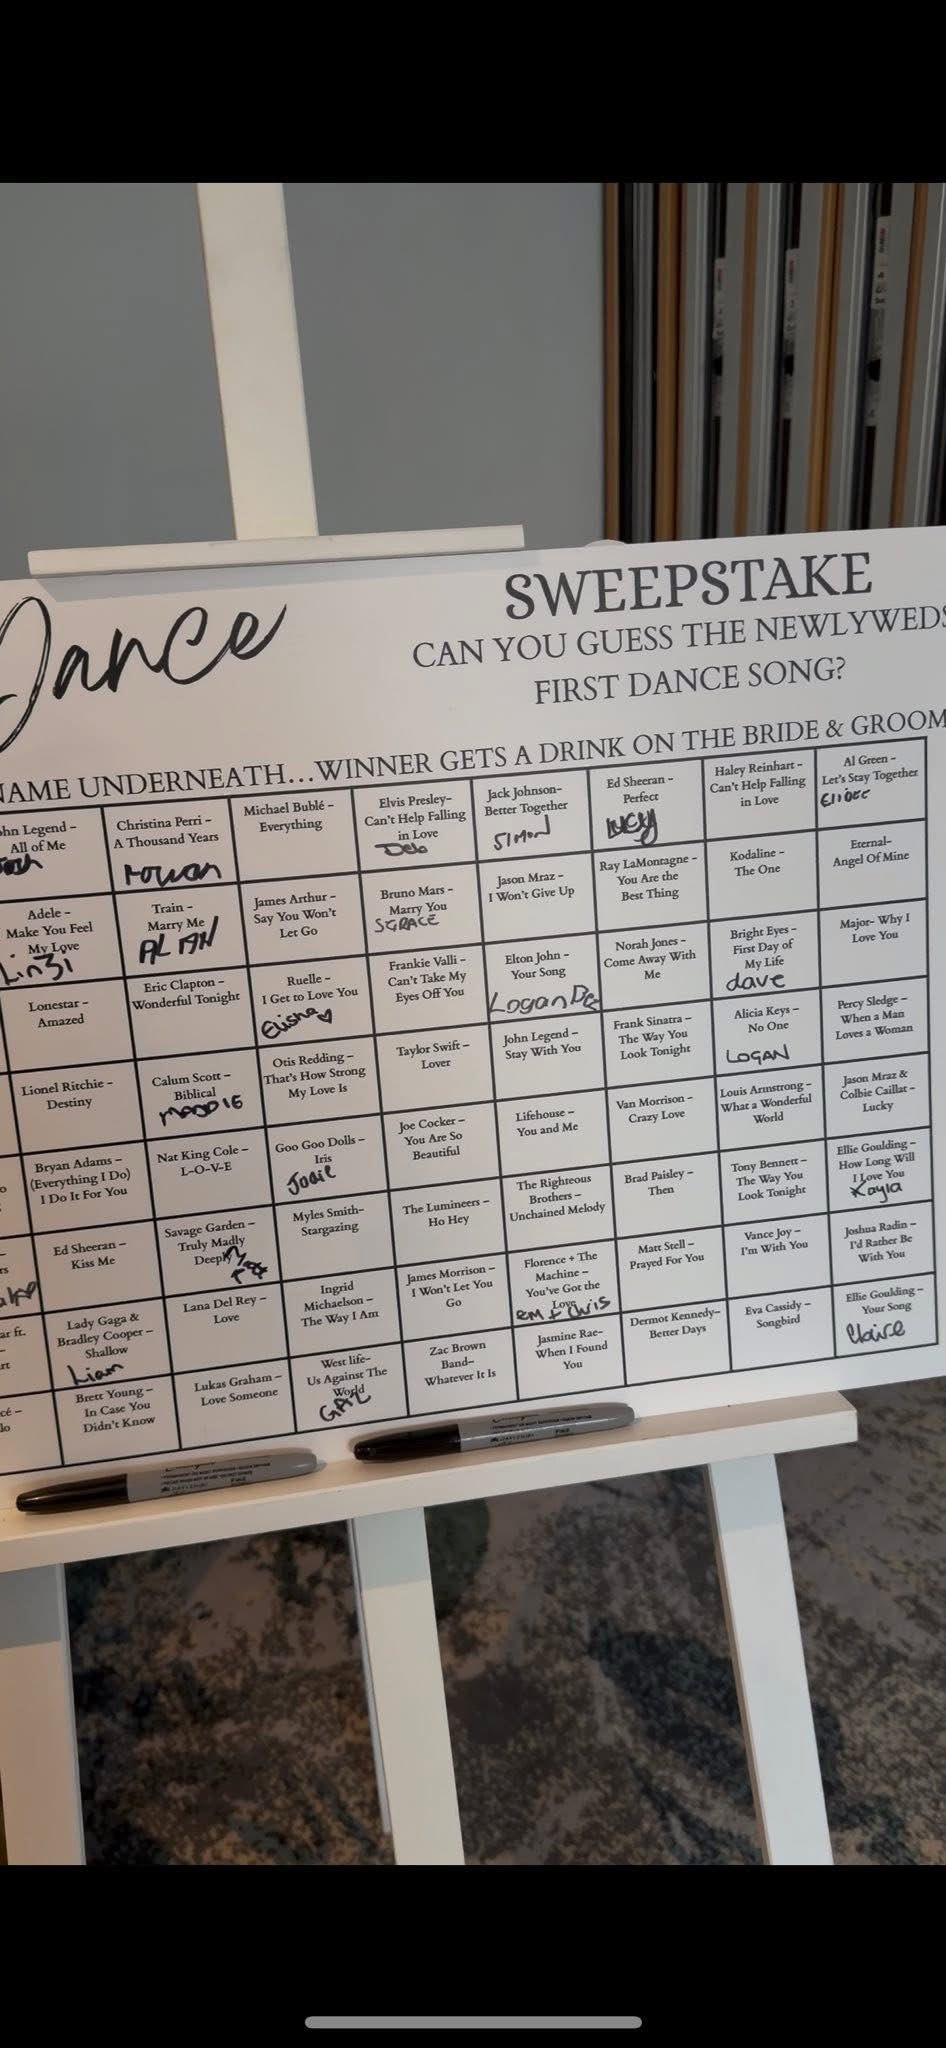 Dance
SWEEPSTAKE
CAN YOU GUESS THE NEWLYWEDS
FIRST DANCE SONG?
NAME UNDERNEATH...WINNER GETS A DRINK ON THE BRIDE & GROOM
hn Legend –
All of Me
Christina Perri –
A Thousand Years
rowan
Michael Bublé –
Everything
Elvis Presley–
Can't Help Falling
in Love
Deb
Jack Johnson–
Better Together
SIMON
Ed Sheeran –
Perfect
Haley Reinhart –
Can't Help Falling
in Love
Al Green –
Let's Stay Together
Adele –
Make You Feel
My Love
Linzi
Train –
Marry Me
ALIAN
James Arthur –
Say You Won't
Let Go
Bruno Mars –
Marry You
SGRACE
Jason Mraz –
I Won't Give Up
Ray LaMontagne –
You Are the
Best Thing
Kodaline –
The One
Eternal–
Angel Of Mine
Lonestar –
Amazed
Eric Clapton –
Wonderful Tonight
Ruelle –
I Get to Love You
Elisha
Frankie Valli –
Can't Take My
Eyes Off You
Elton John –
Your Song
Logan
Norah Jones –
Come Away With
Me
Bright Eyes –
First Day of
My Life
dave
Major– Why I
Love You
Lionel Ritchie –
Destiny
Calum Scott –
Biblical
MADDIE
Otis Redding –
That's How Strong
My Love Is
Taylor Swift –
Lover
John Legend –
Stay With You
Frank Sinatra –
The Way You
Look Tonight
Alicia Keys –
No One
LOGAN
Percy Sledge –
When a Man
Loves a Woman
Bryan Adams –
(Everything I Do)
I Do It For You
Nat King Cole –
L-O-V-E
Goo Goo Dolls –
Iris
Jodie
Joe Cocker –
You Are So
Beautiful
Lifehouse –
You and Me
Van Morrison –
Crazy Love
Louis Armstrong –
What a Wonderful
World
Jason Mraz &
Colbie Caillat –
Lucky
Ed Sheeran –
Kiss Me
Savage Garden –
Truly Madly
Deeply
Myles Smith–
Stargazing
The Lumineers –
Ho Hey
The Righteous
Brothers –
Unchained Melody
Brad Paisley –
Then
Tony Bennett –
The Way You
Look Tonight
Ellie Goulding –
How Long Will
I Love You
Kayla
Lady Gaga &
Bradley Cooper –
Shallow
Liam
Lana Del Rey –
Love
Ingrid
Michaelson –
The Way I Am
James Morrison –
I Won't Let You
Go
Florence + The
Machine –
You've Got the
Love
em + Chris
Matt Stell –
Prayed For You
Vance Joy –
I'm With You
Joshua Radin –
I'd Rather Be
With You
Brett Young –
In Case You
Didn't Know
Lukas Graham –
Love Someone
West life–
Us Against The
World
GAIL
Zac Brown
Band–
Whatever It Is
Jasmine Rae–
When I Found
You
Dermot Kennedy–
Better Days
Eva Cassidy –
Songbird
Ellie Goulding –
Your Song
Claire